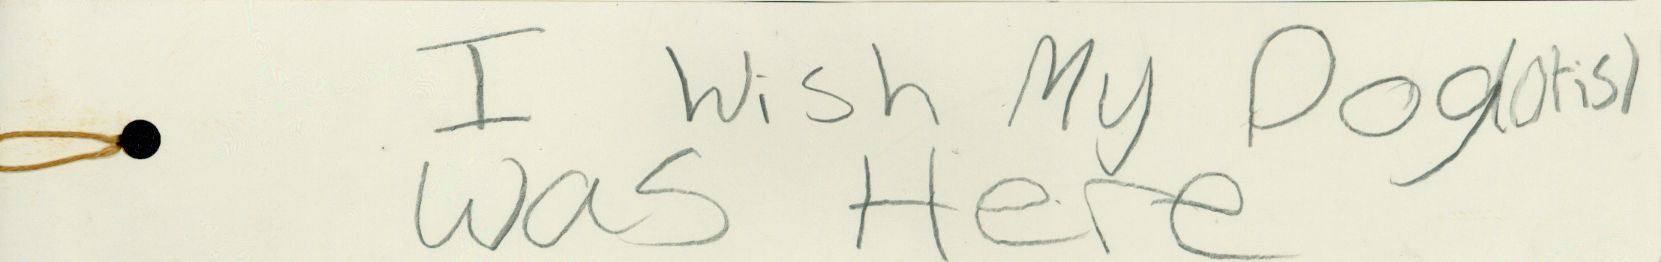 I Wish My Dog(Otis)
was Here